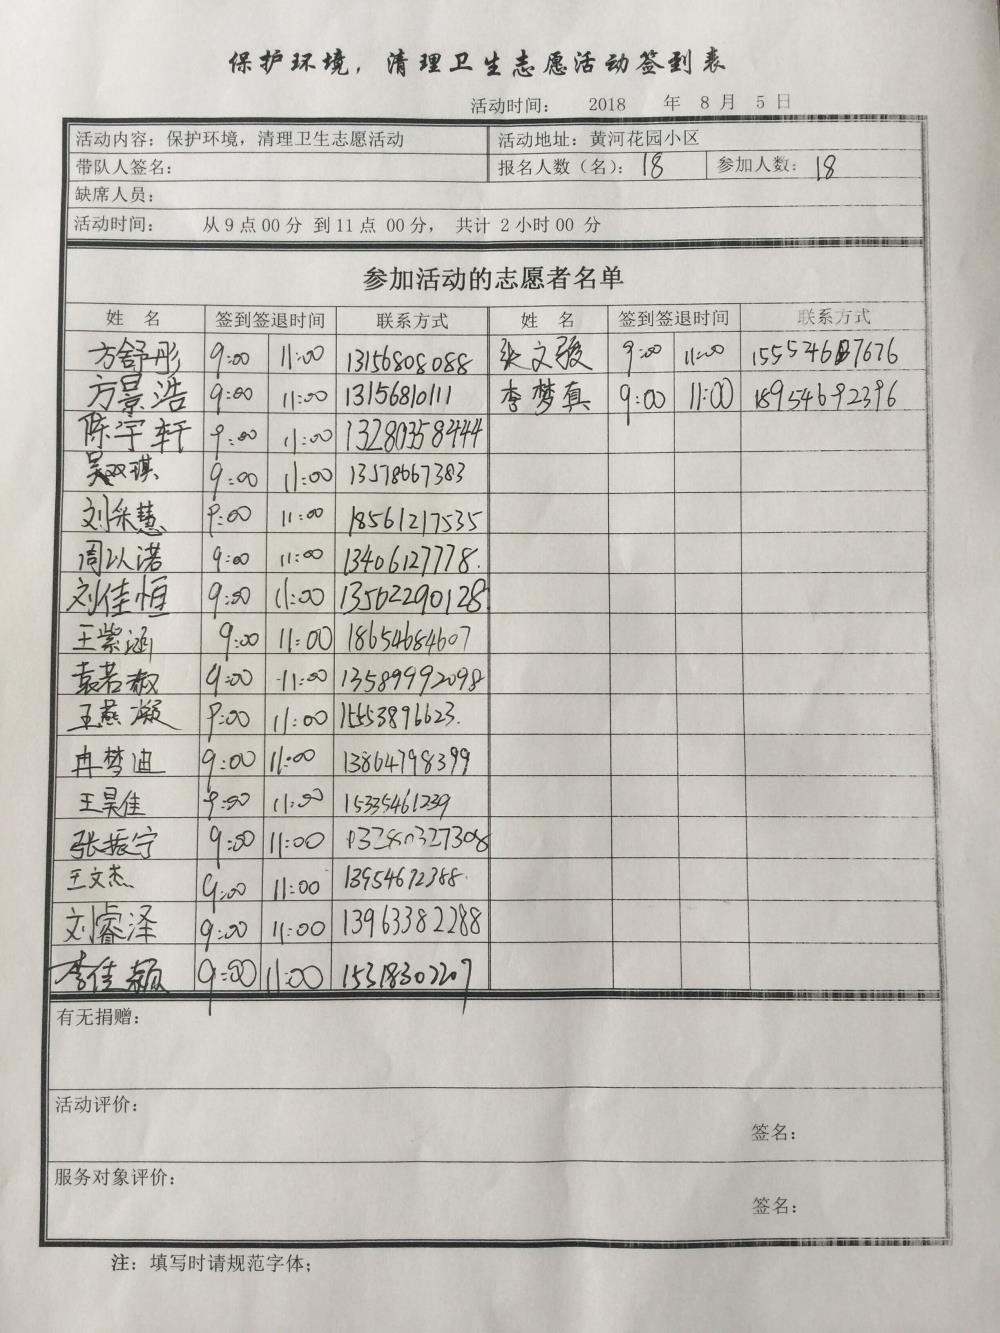 保护环境，清理卫生志愿活动签到表
活动时间： 2018 年 8 月 5 日
活动内容：保护环境，清理卫生志愿活动 活动地址：黄河花园小区
带队人签名： 报名人数（名）：18 参加人数：18
缺席人员：
活动时间： 从9点00分 到11点 00分， 共计 2小时00 分
参加活动的志愿者名单
姓 名 签到签退时间 联系方式 姓 名 签到签退时间 联系方式
方舒彤 9:00 11:00 13156808088 张文骏 9:00 11:00
方景浩 9:00 11:00 13156810111 李梦真 9:00 11:00 18954692396
陈宇轩 9:00 11:00 13280358444
吴双琪 9:00 11:00 13578667383
刘采慧 9:00 11:00 18561217535
周以诺 9:00 11:00 13406127778.
刘佳恒 9:00 11:00 13562290128
王紫涵 9:00 11:00 18654684607
袁若椒 9:00 11:00 13589992098
王燕凝 9:00 11:00 15553896623.
冉梦迪 9:00 11:00 13864798399
王昊佳 9:00 11:00 15335461239
张振宁 9:00 11:00
王文杰 9:00 11:00 13954672388.
刘睿泽 9:00 11:00 13963382288
李佳颖 9:00 11:00 15318302207
有无捐赠：
活动评价：
签名：
服务对象评价：
签名：
注：填写时请规范字体；